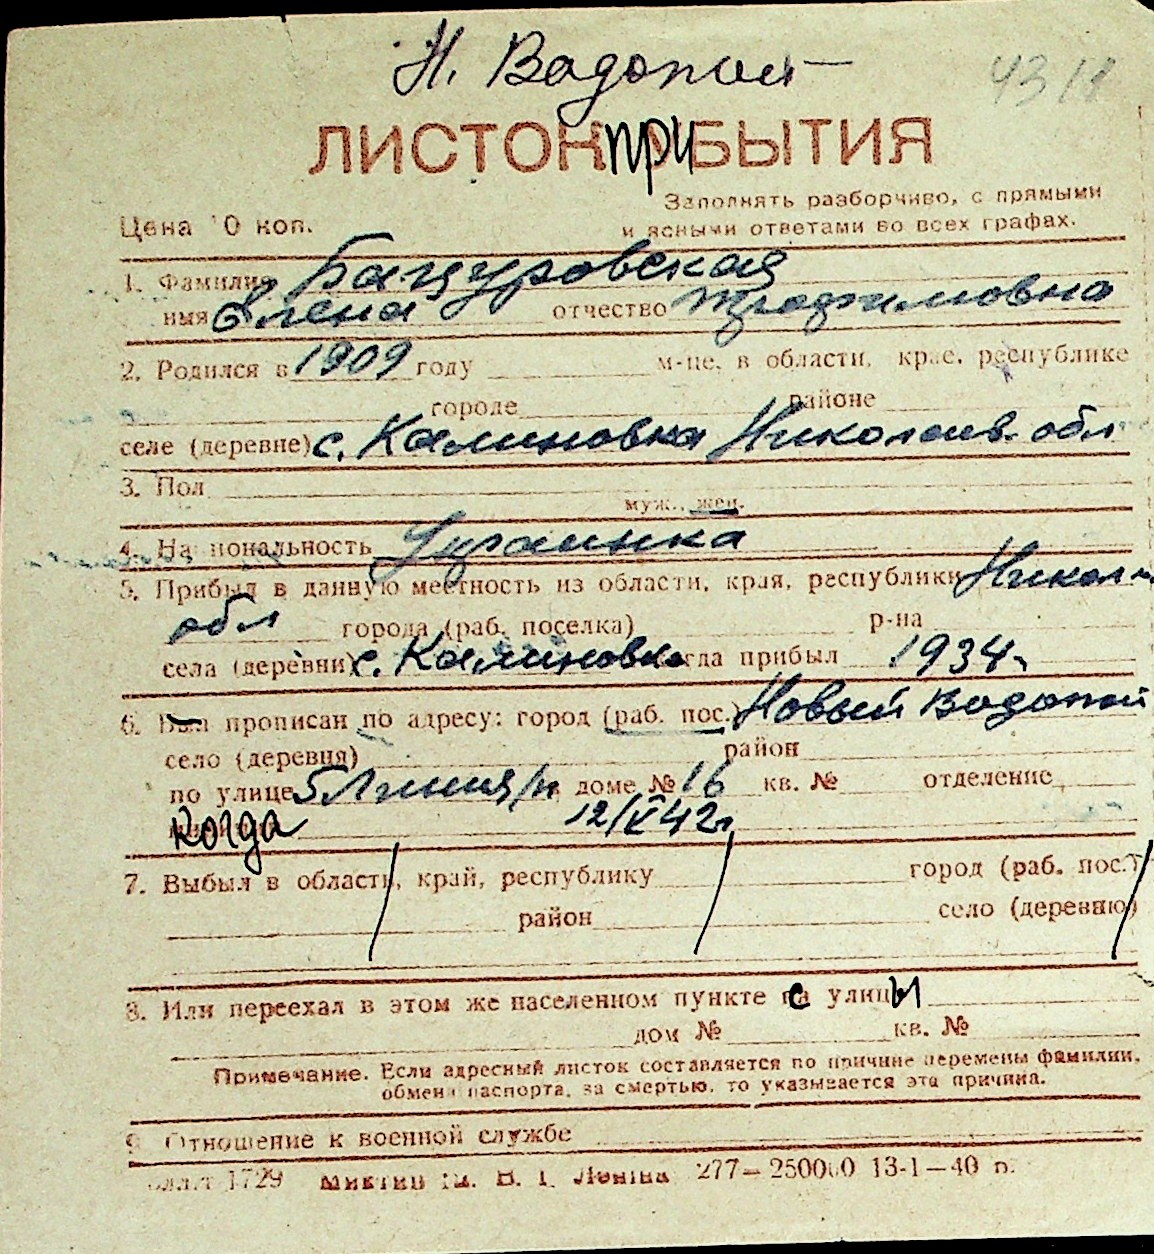 Н. Водопой
43
ЛИСТОК ПРИБЫТИЯ
Заполнять разборчиво, с прямыми
Цена 10 коп.
и ясными ответами во всех графах.
1. Фамилия Бацуровская
имя Елена отчество Трофимовна
2. Родился в 1909 году м-це, в области, крае, республике
городе районе
селе (деревне) с. Калиновка Николаев. обл
3. Пол
муж., жен.
4. Национальность Украинка
5. Прибыл в данную местность из области, края, республики Никол
обл города (раб. поселка) р-на
села (деревни) с. Калиновка когда прибыл 1934
6. Был прописан по адресу: город (раб. пос.) Новый Водопой
село (деревня) район
по улице 5 Линия доме № 16 кв. № отделение
Когда 12/V 42г
7. Выбыл в область, край, республику город (раб. пос.)
район село (деревню)
8. Или переехал в этом же населенном пункте с улицы
дом № кв. №
Примечание. Если адресный листок составляется по причине перемены фамилии,
обмена паспорта, за смертью, то указывается эта причина.
9. Отношение к военной службе
1729 В. І. Леніна 277—250000 13-1—40 р.